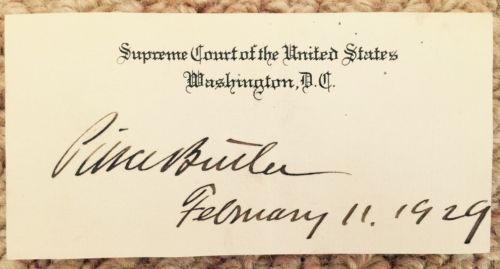 Supreme Court of the United States
Washington, D.C.
Pierce Butler
February 11. 1929